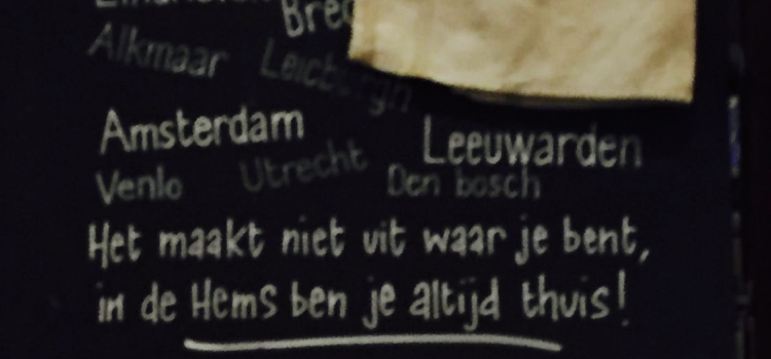 Alkmaar
Amsterdam Leeuwarden
Venlo Utrecht Den bosch
Het maakt niet uit waar je bent,
in de Hems ben je altijd thuis!